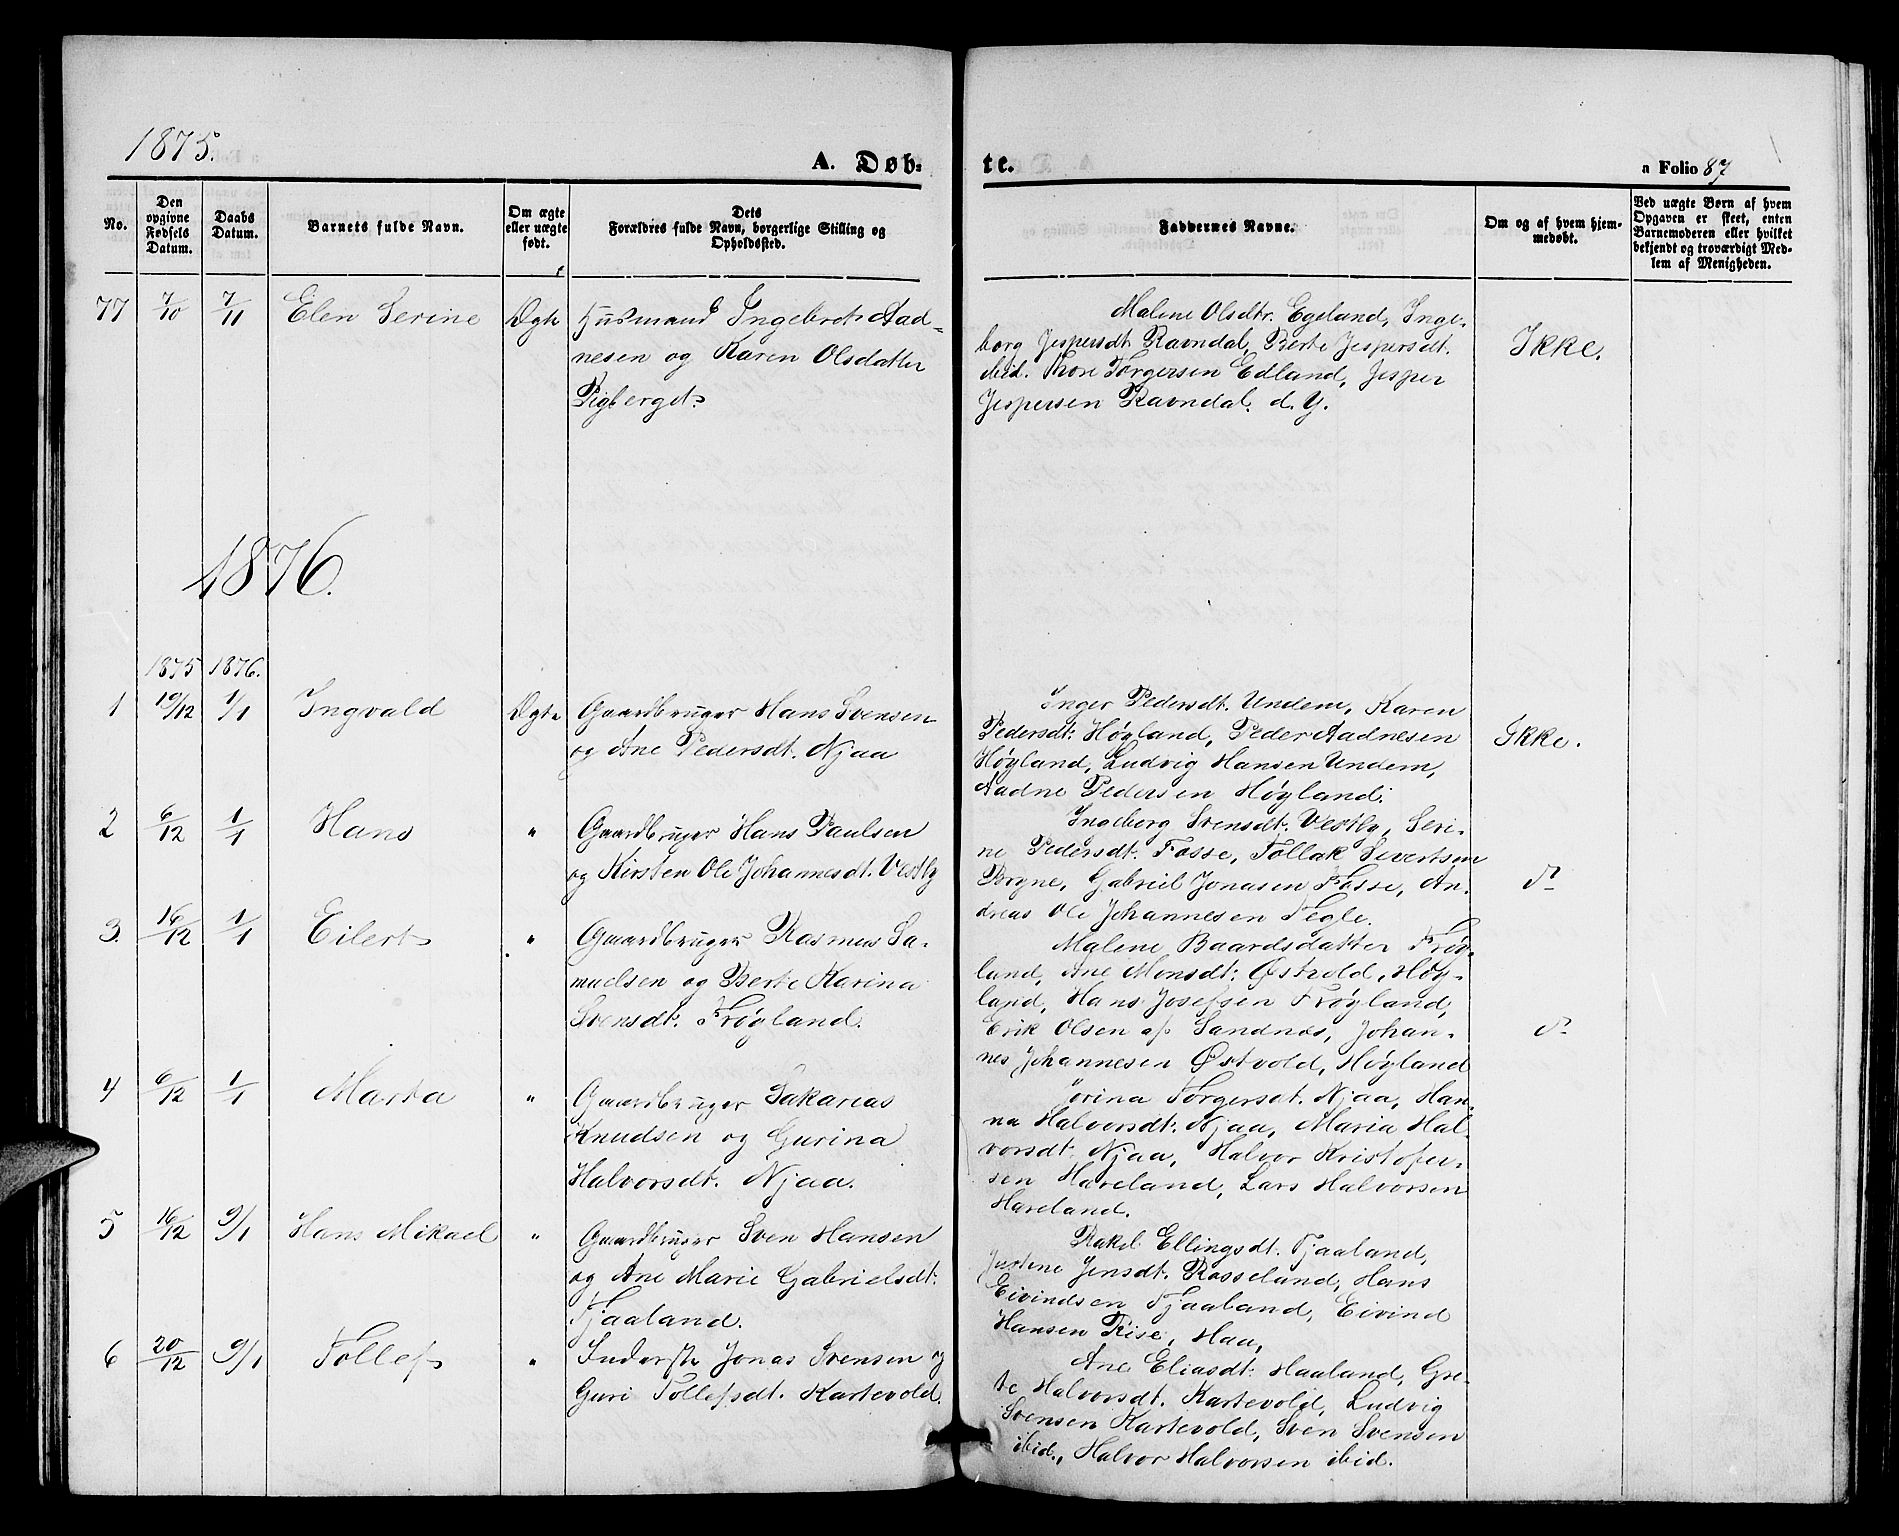 1875.
A. Døb-
te.
a Folio 87
No.
Den opgivne Fødsels Datum.
Daabs Datum.
Barnets fulde Navn.
Om ægte eller uægte født.
Dets Forældres fulde Navn, borgerlige Stilling og Opholdssted.
Faddernes Navne.
Om og af hvem hjemmedøbt.
Ved uægte Børn af hvem Opgaven er skeet, enten Barnemoderen eller hvilket bekjendt og troværdigt Medlem af Menigheden.
77 7/10 7/11 Elen Serine Ægte Husmand Ingebret Aad-
nesen og Karen Olsdatter
Malene Olsdtr. Egeland, Inge-
borg Jespersdt. Ravndal, Berte Jespersdt.
ibid. Thore Torgersen Edland, Jesper
Jespersen Ravndal. d. y.
Ikke.
1876.
1875 1876.
1 19/12 1/1 Ingvald Ægte Gaardbruger Hans Svensen
og Ane Pedersdt. Njaa
Inger Pedersdt. Undem, Karen
Pedersdt: Høyland, Peder Aadnesen
Høyland, Ludvig Hansen Undem,
Aadne Pedersen Høyland.
Ikke.
2 6/12 1/1 Hans " Gaardbruger Hans Paulsen
og Kirsten Ole Johannesdt. Vestly
Ingeborg Svensdt: Vestly, Seri-
ne Pedersdt. Fosse, Tollak Sivertsen
Bryne, Gabriel Jonasen Fosse, An-
dreas Ole Johannesen Tegle.
do
3. 16/12 1/1 Eilert " Gaardbruger Rasmus Sa-
muelsen og Berte Karina
Svensdt. Frøyland.
Malene Baardsdatter Frøy-
land, Ane Monsdt: Østvold, Høy-
land, Hans Josefsen Frøyland,
Erik Olsen af Sandnæs, Johan-
nes Johannesen Østvold, Høyland
do
4 6/12 1/1 Marta " Gaardbruger Sakarias
Knudsen og Gurina
Halvorsdt. Njaa.
Jørina Torgersdt. Njaa, Han-
na Halvorsdt: Njaa, Maria Hal-
vorsdt. Njaa, Halvor Kristofer-
sen Hareland, Lars Halvorsen
Hareland.
5 16/12 9/1 Hans Mikael " Gaardbruger Sven Hansen
og Ane Marie Gabrielsdt.
Tjaaland.
Rakel Ellingsdt. Tjaaland,
Justine Jensdt. Rosseland, Hans
Eivindsen Tjaaland, Eivind
Hansen Rise, Haa,
6 20/12 9/1 Tollef " Inderste Jonas Svensen og
Guri Tollefsdt. Kartevold.
Ane Eliasdt: Haaland, Gre-
te Halvorsdt. Kartevold, Ludvig
Svensen Kartevold, Sven Svensen
ibid., Halvor Halvorsen ibid.